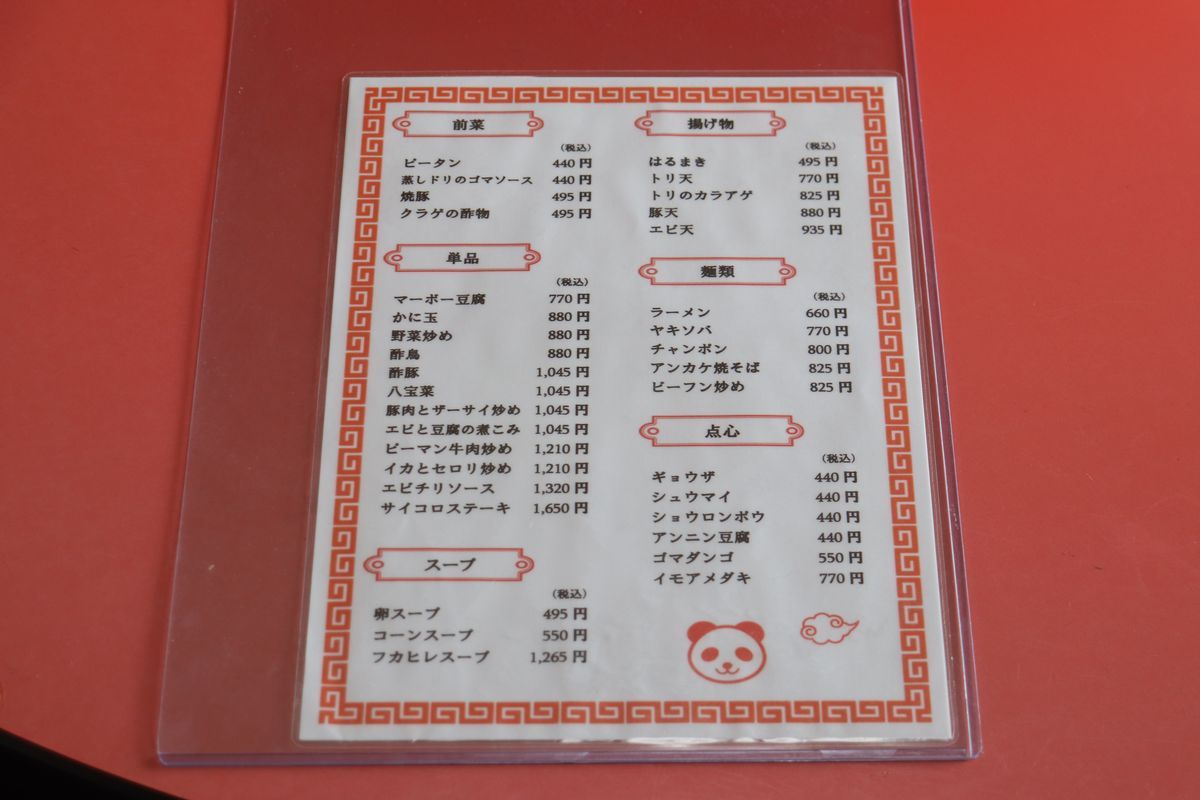 前菜
(税込)
ピータン 440 円
蒸しドリのゴマソース 440 円
焼豚 495 円
クラゲの酢物 495 円
単品
(税込)
マーボー豆腐 770 円
かに玉 880 円
野菜炒め 880 円
酢鳥 880 円
酢豚 1,045 円
八宝菜 1,045 円
豚肉とザーサイ炒め 1,045 円
エビと豆腐の煮こみ 1,045 円
ピーマン牛肉炒め 1,210 円
イカとセロリ炒め 1,210 円
エビチリソース 1,320 円
サイコロステーキ 1,650 円
スープ
(税込)
卵スープ 495 円
コーンスープ 550 円
フカヒレスープ 1,265 円
揚げ物
(税込)
はるまき 495 円
トリ天 770 円
トリのカラアゲ 825 円
豚天 880 円
エビ天 935 円
麺類
(税込)
ラーメン 660 円
ヤキソバ 770 円
チャンポン 800 円
アンカケ焼そば 825 円
ビーフン炒め 825 円
点心
(税込)
ギョウザ 440 円
シュウマイ 440 円
ショウロンポウ 440 円
アンニン豆腐 440 円
ゴマダンゴ 550 円
イモアメダキ 770 円